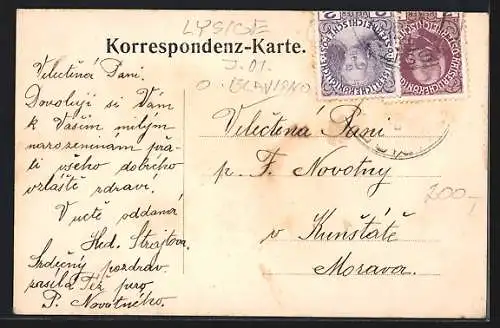 LYSICE
J. 01.
O. BLAVISNO
Korrespondenz-Karte.
Velectěná Paní.
Dovoluji si Vám
k Vašim milým
narozeninám přá-
ti všeho dobrého
zvláště zdraví.
V uctě oddaná
Hed. Strejtova.
Srdečný pozdrav
zasílá Též pro
P. Novotného.
Velectěná Paní
p. F. Novotny
v Kunštátě
Morava.
200,-